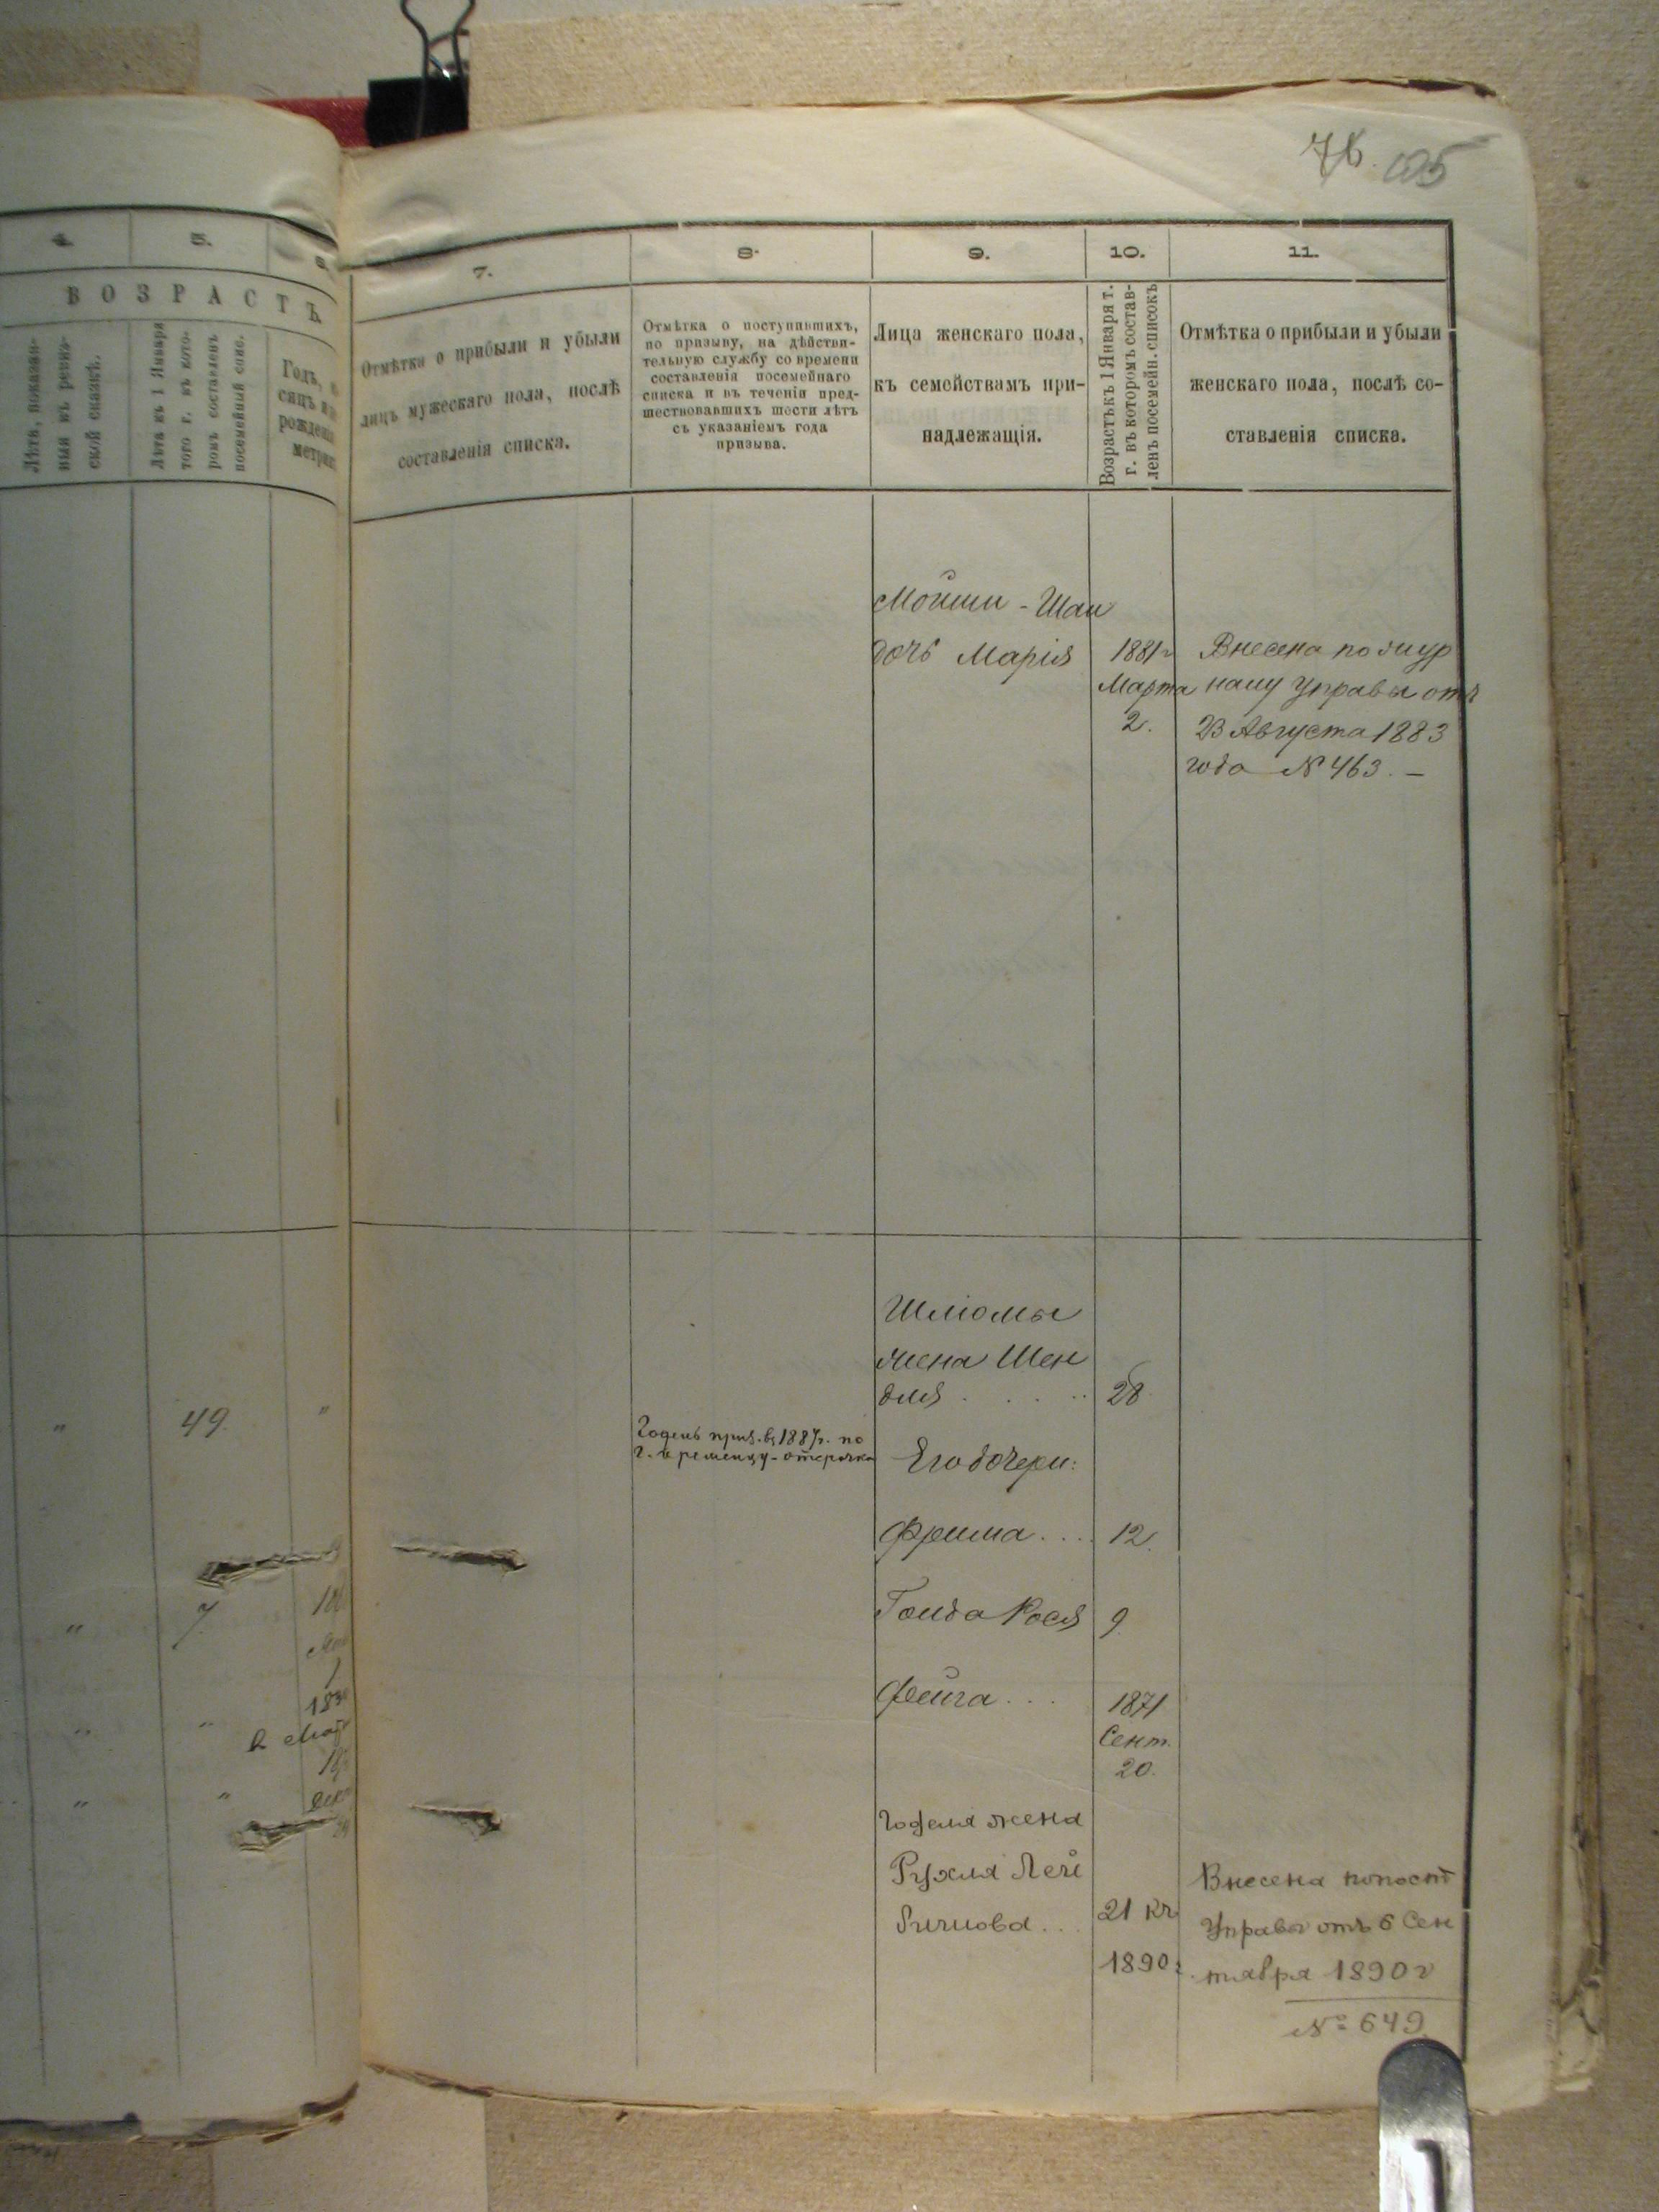 76. 105
4.
5.
6.
ВОЗРАСТЪ
Лѣта, показан-
ныя въ ревиз-
ской сказкѣ.
Лѣта къ 1 Января
того г. въ кото-
ромъ составленъ
посемейный спис.
Годъ,
рожденія
метрик
7.
Отмѣтка о прибыли и убыли
лицъ мужескаго пола, послѣ
составленія списка.
8.
Отмѣтка о поступившихъ,
по призыву, на дѣйстви-
тельную службу со времени
составленія посемейнаго
списка и въ теченіи пред-
шествовавшихъ шести лѣтъ
съ указаніемъ года
призыва.
9.
Лица женскаго пола,
къ семействамъ при-
надлежащія.
10.
Возрастъ къ 1 Января т.
г. въ которомъ состав-
ленъ посемейн. списокъ
11.
Отмѣтка о прибыли и убыли
женскаго пола, послѣ со-
ставленія списка.
Мойши - Шаи
дочь Марія
1881 г
Марта
2.
Внесена по жур
налу Управы отъ
23 Августа 1883
года № 463. —
Шліомы
жена Шен
для . . . .
28
Его дочери:
Фрима . . .
12.
Голда Рося
9.
Фейга . . .
1871
Сент.
20.
49.
7.
Годенъ приз. въ 1887 г. по
отсрочка
Годеля жена
Рухля Лей
бичова . . .
21 къ
1890 г.
Внесена по пост
Управы отъ 6 Сен
тября 1890 г
№ 649